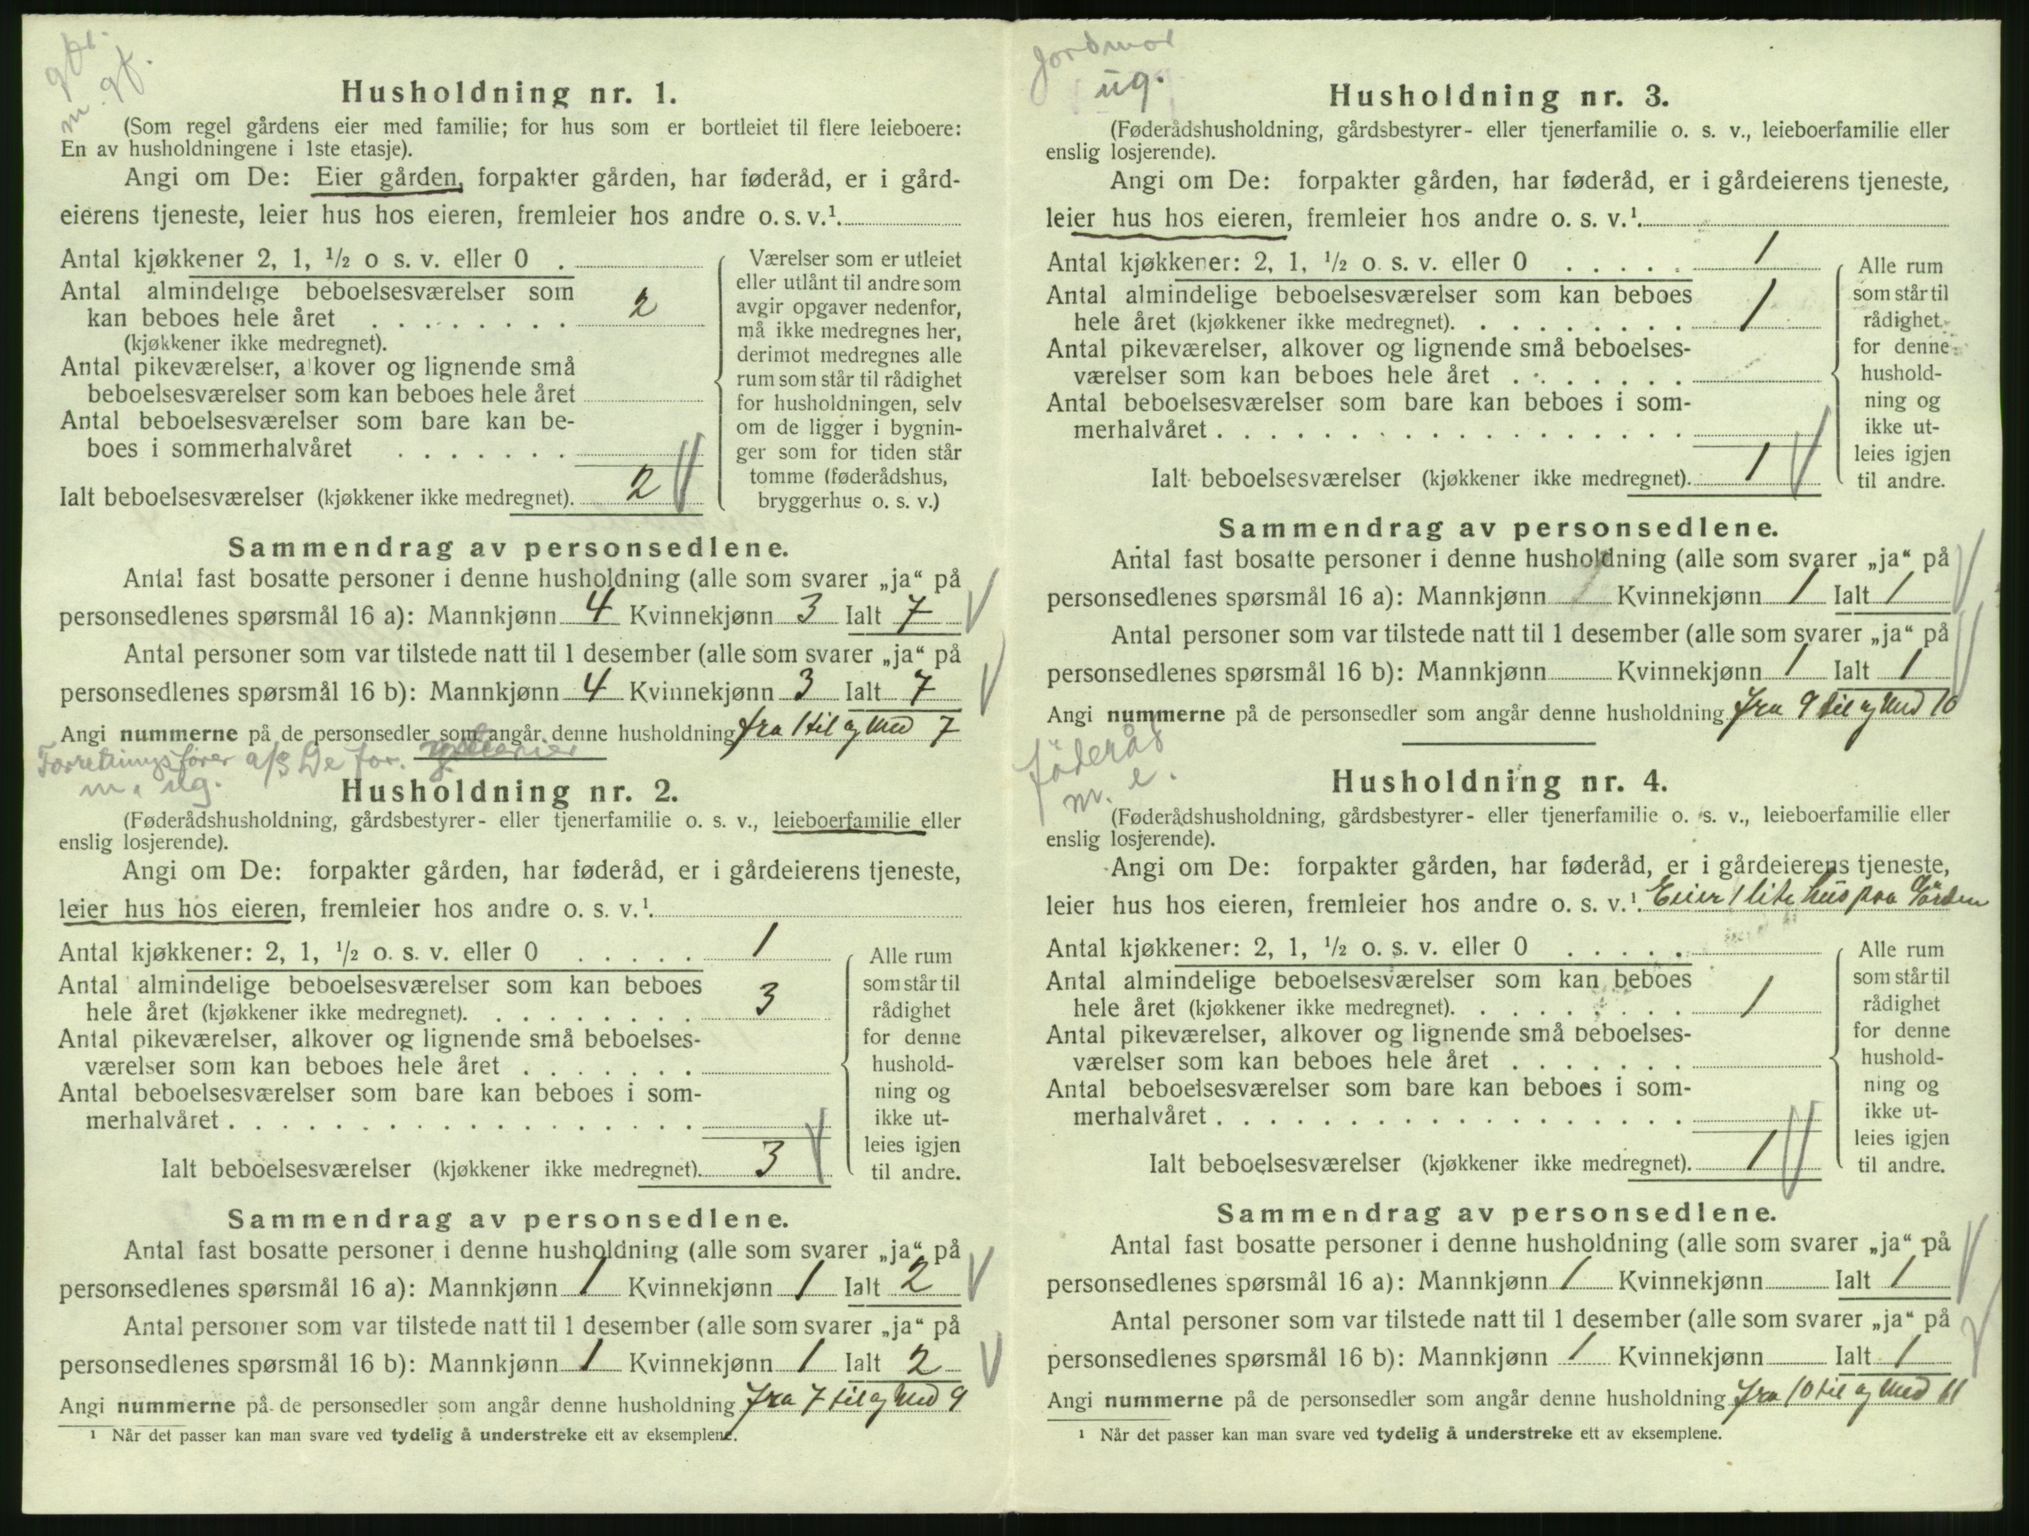 gbr.
m. gf.
Husholdning nr. 1.
(Som regel gårdens eier med familie; for hus som er bortleiet til flere leieboere:
En av husholdningene i 1ste etasje).
Angi om De: Eier gården, forpakter gården, har føderåd, er i gård-
eierens tjeneste, leier hus hos eieren, fremleier hos andre o. s. v.¹.
Antal kjøkkener 2, 1, ½ o s. v. eller 0 .
Antal almindelige beboelsesværelser som
kan beboes hele året . . . . . . . . 2
(kjøkkener ikke medregnet).
Antal pikeværelser, alkover og lignende små
beboelsesværelser som kan beboes hele året
Antal beboelsesværelser som bare kan be-
boes i sommerhalvåret . . . . . . .
Ialt beboelsesværelser (kjøkkener ikke medregnet). 2
Værelser som er utleiet
eller utlånt til andre som
avgir opgaver nedenfor,
må ikke medregnes her,
derimot medregnes alle
rum som står til rådighet
for husholdningen, selv
om de ligger i bygnin-
ger som for tiden står
tomme (føderådshus,
bryggerhus o. s. v.)
Sammendrag av personsedlene.
Antal fast bosatte personer i denne husholdning (alle som svarer „ja“ på
personsedlenes spørsmål 16 a): Mannkjønn 4 Kvinnekjønn 3 Ialt 7
Antal personer som var tilstede natt til 1 desember (alle som svarer „ja“ på
personsedlenes spørsmål 16 b): Mannkjønn 4 Kvinnekjønn 3 Ialt 7
Angi nummerne på de personsedler som angår denne husholdning fra 1 til og med 7
Forretningsfører a/s De for.
m. ug.
Husholdning nr. 2.
(Føderådshusholdning, gårdsbestyrer- eller tjenerfamilie o. s. v., leieboerfamilie eller
enslig losjerende).
Angi om De: forpakter gården, har føderåd, er i gårdeierens tjeneste,
leier hus hos eieren, fremleier hos andre o. s. v.¹.
Antal kjøkkener: 2, 1, ½ o. s. v. eller 0 . . . . . 1
Antal almindelige beboelsesværelser som kan beboes
hele året (kjøkkener ikke medregnet). . . . . . . . . 3
Antal pikeværelser, alkover og lignende små beboelses-
værelser som kan beboes hele året . . . . . . .
Antal beboelsesværelser som bare kan beboes i som-
merhalvåret . . . . . . . . . . . . . . . . . .
Ialt beboelsesværelser (kjøkkener ikke medregnet). 3
Alle rum
som står til
rådighet
for denne
hushold-
ning og
ikke ut-
leies igjen
til andre.
Sammendrag av personsedlene.
Antal fast bosatte personer i denne husholdning (alle som svarer „ja“ på
personsedlenes spørsmål 16 a): Mannkjønn 1 Kvinnekjønn 1 Ialt 2
Antal personer som var tilstede natt til 1 desember (alle som svarer „ja“ på
personsedlenes spørsmål 16 b): Mannkjønn 1 Kvinnekjønn 1 Ialt 2
Angi nummerne på de personsedler som angår denne husholdning fra 7 til og med 9
¹ Når det passer kan man svare ved tydelig å understreke ett av eksemplene.
Jordmor
ug.
Husholdning nr. 3.
(Føderådshusholdning, gårdsbestyrer- eller tjenerfamilie o. s. v., leieboerfamilie eller
enslig losjerende).
Angi om De: forpakter gården, har føderåd, er i gårdeierens tjeneste,
leier hus hos eieren, fremleier hos andre o. s. v.¹.
Antal kjøkkener: 2, 1, ½ o. s. v. eller 0 . . . . . 1
Antal almindelige beboelsesværelser som kan beboes
hele året (kjøkkener ikke medregnet). . . . . . . . . 1
Antal pikeværelser, alkover og lignende små beboelses-
værelser som kan beboes hele året . . . . . . .
Antal beboelsesværelser som bare kan beboes i som-
merhalvåret . . . . . . . . . . . . . . . . . .
Ialt beboelsesværelser (kjøkkener ikke medregnet). 1
Alle rum
som står til
rådighet
for denne
hushold-
ning og
ikke ut-
leies igjen
til andre.
Sammendrag av personsedlene.
Antal fast bosatte personer i denne husholdning (alle som svarer „ja“ på
personsedlenes spørsmål 16 a): Mannkjønn Kvinnekjønn 1 Ialt 1
Antal personer som var tilstede natt til 1 desember (alle som svarer „ja“ på
personsedlenes spørsmål 16 b): Mannkjønn Kvinnekjønn 1 Ialt 1
Angi nummerne på de personsedler som angår denne husholdning fra 9 til og med 10
føderåd
m. e.
Husholdning nr. 4.
(Føderådshusholdning, gårdsbestyrer- eller tjenerfamilie o. s. v., leieboerfamilie eller
enslig losjerende).
Angi om De: forpakter gården, har føderåd, er i gårdeierens tjeneste,
leier hus hos eieren, fremleier hos andre o. s. v.¹. Eier 1 lite hus paa Gården
Antal kjøkkener: 2, 1, ½ o. s. v. eller 0 . . . . .
Antal almindelige beboelsesværelser som kan beboes
hele året (kjøkkener ikke medregnet). . . . . . . . . 1
Antal pikeværelser, alkover og lignende små beboelses-
værelser som kan beboes hele året . . . . . . .
Antal beboelsesværelser som bare kan beboes i som-
merhalvåret . . . . . . . . . . . . . . . . . .
Ialt beboelsesværelser (kjøkkener ikke medregnet). 1
Alle rum
som står til
rådighet
for denne
hushold-
ning og
ikke ut-
leies igjen
til andre.
Sammendrag av personsedlene.
Antal fast bosatte personer i denne husholdning (alle som svarer „ja“ på
personsedlenes spørsmål 16 a): Mannkjønn 1 Kvinnekjønn Ialt 1
Antal personer som var tilstede natt til 1 desember (alle som svarer „ja“ på
personsedlenes spørsmål 16 b): Mannkjønn 1 Kvinnekjønn Ialt 1
Angi nummerne på de personsedler som angår denne husholdning fra 10 til og med 11
¹ Når det passer kan man svare ved tydelig å understreke ett av eksemplene.